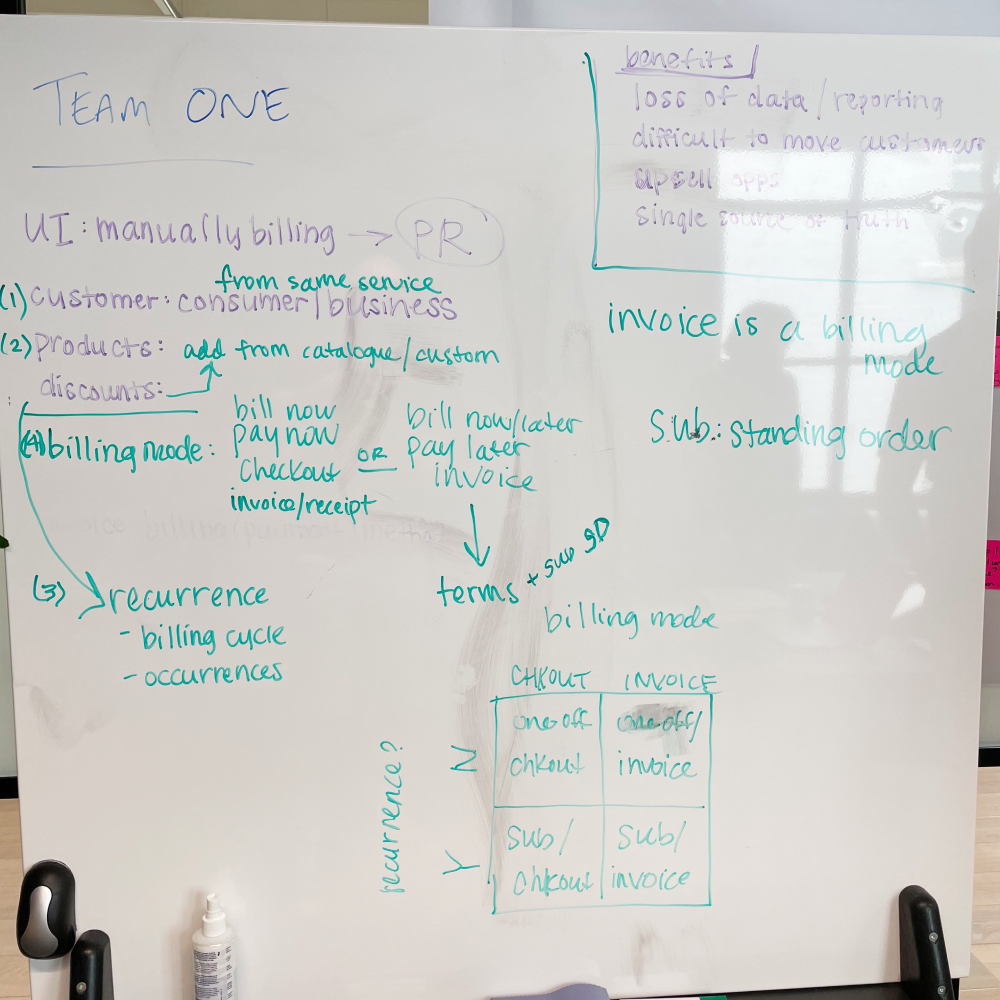 TEAM ONE
benefits
loss of data / reporting
difficult to move customers
upsell opps
single source of truth
UI: manually billing → PR
from same service
(1) customer: consumer/business
(2) products: add from catalogue/custom
discounts:
invoice is a billing
mode
sub.: standing order
(4) billing mode:
bill now
pay now
checkout
invoice/receipt
OR
bill now/later
pay later
invoice
terms +
(3) recurrence
- billing cycle
- occurrences
billing mode
CHKOUT INVOICE
recurrence?
N
one-off
chkout
one-off/
invoice
Y
sub/
chkout
sub/
invoice